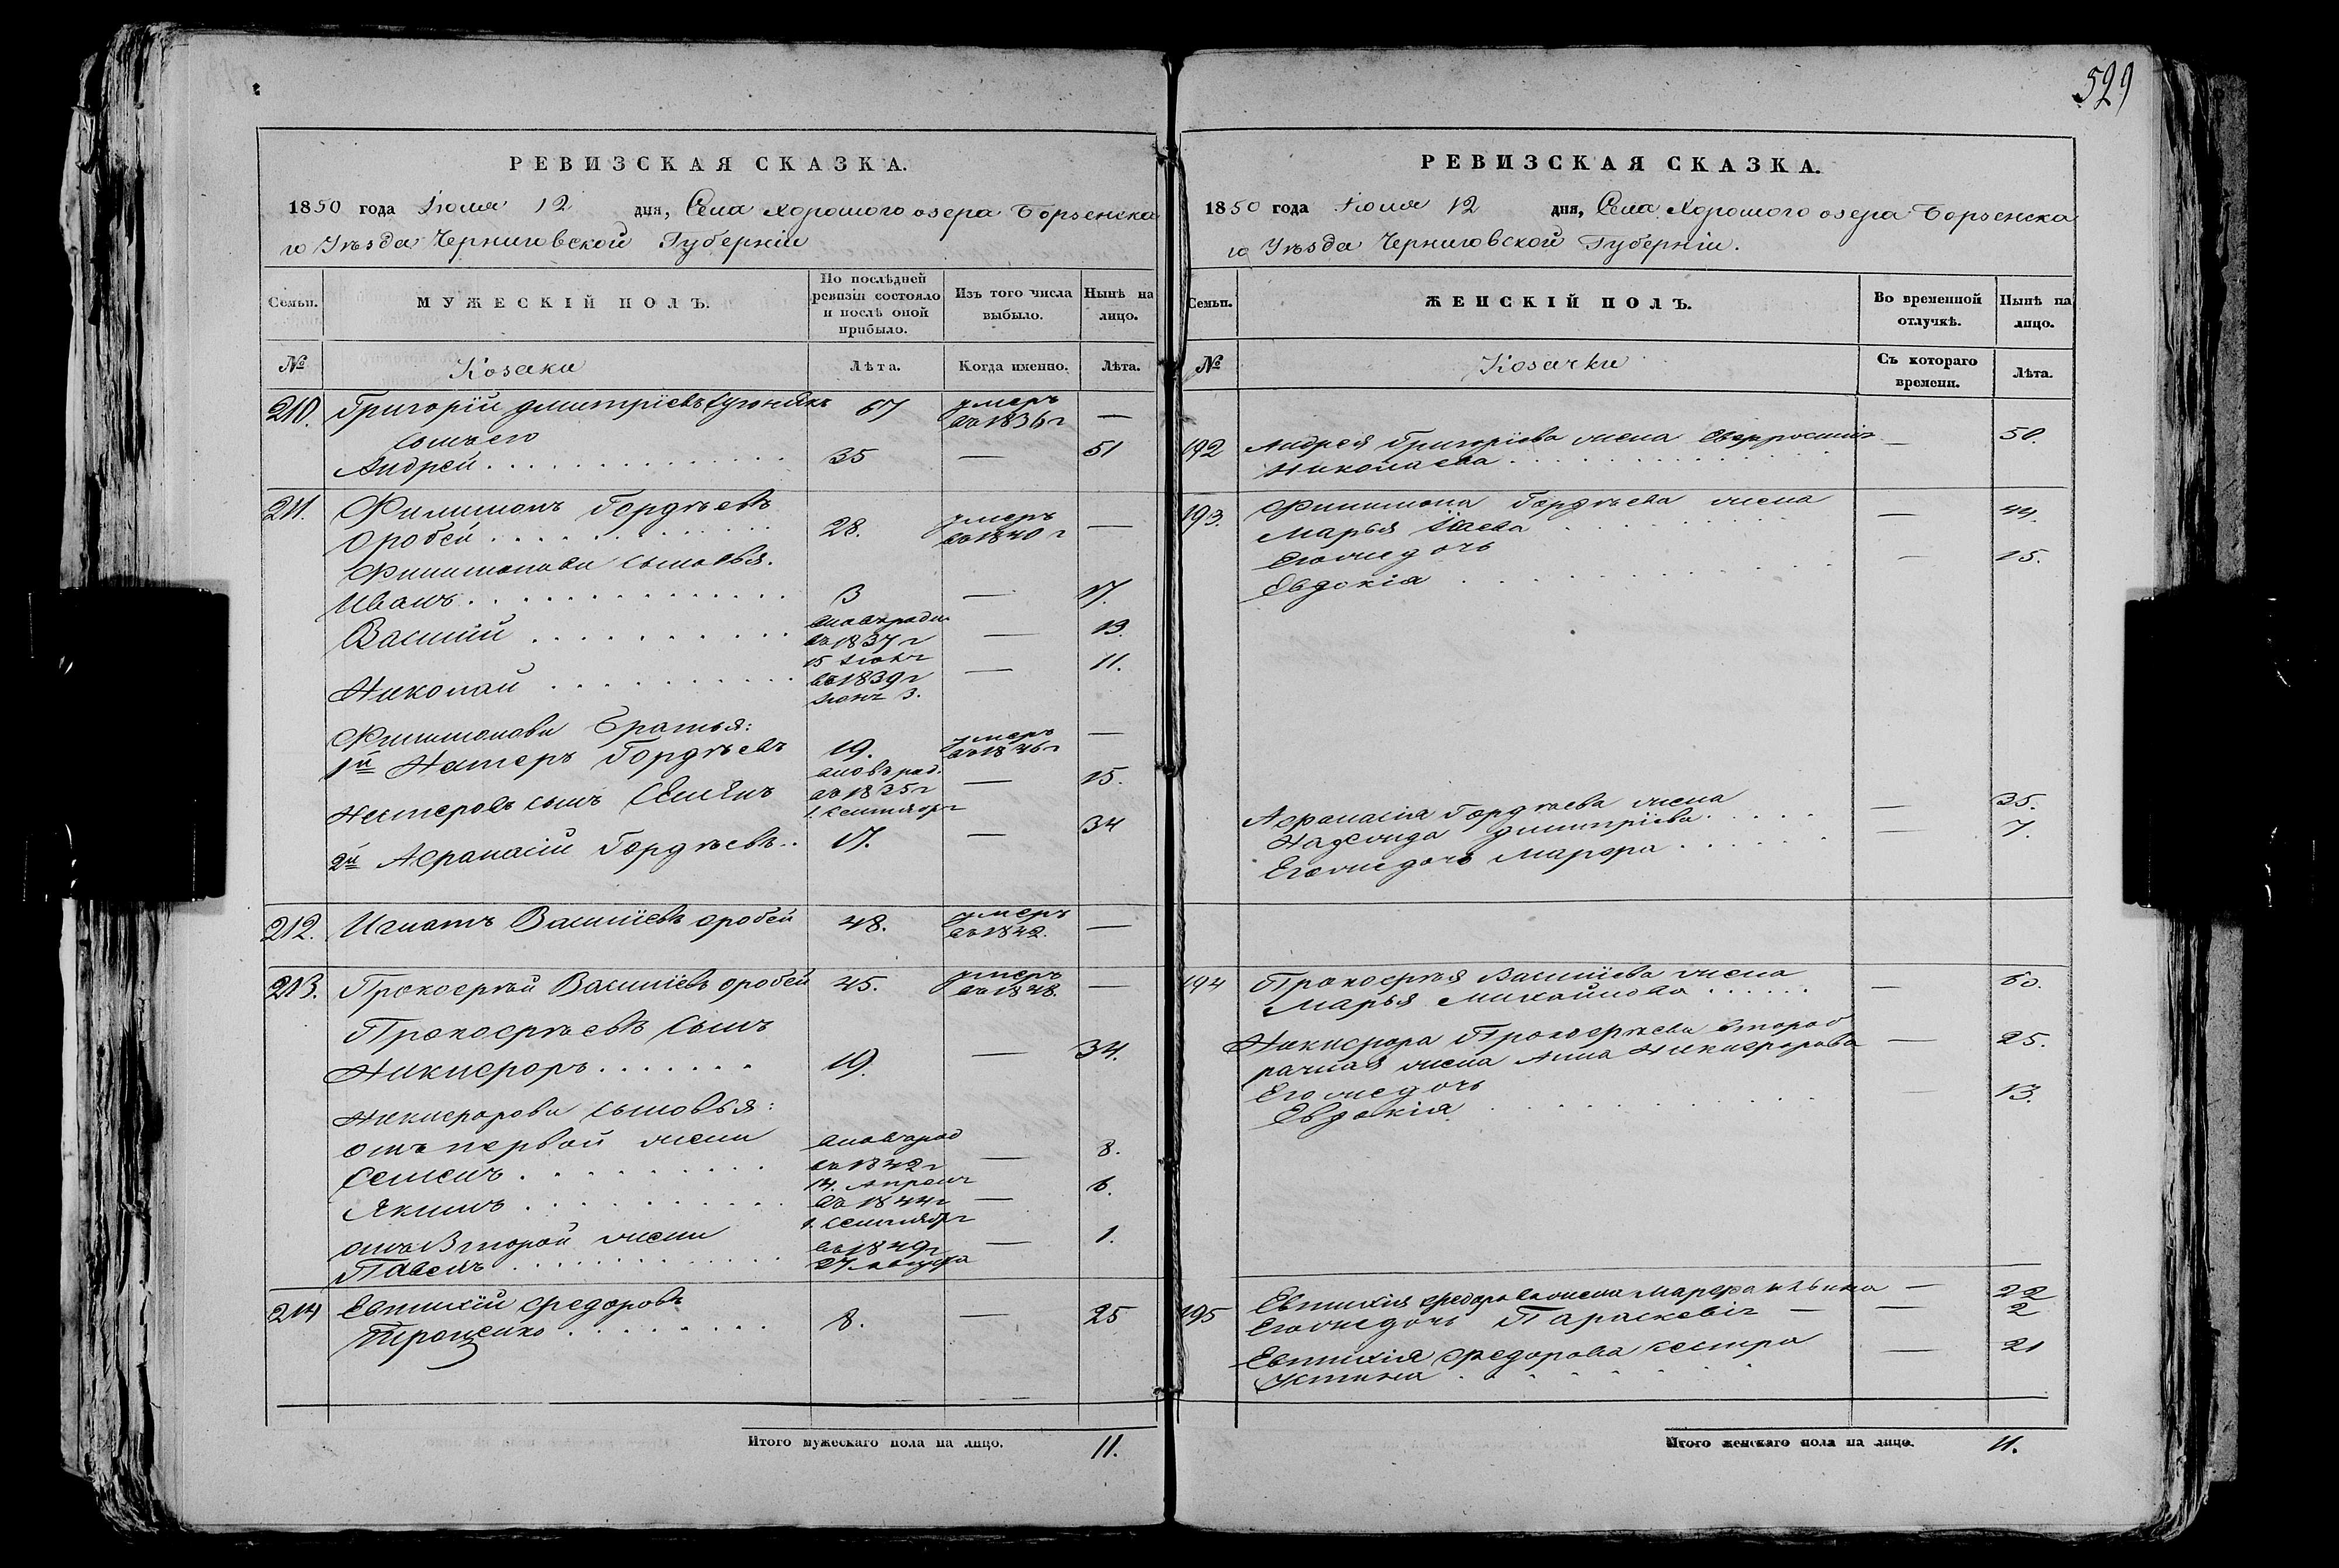 529
РЕВИЗСКАЯ СКАЗКА.
1850 года Июля 12 дня, Села Хорошого озера Борзенска
го Уѣзда Черниговской Губерніи
Семьи.
МУЖЕСКІЙ ПОЛЪ.
По послѣдней ревизіи состояло и послѣ оной прибыло.
Изъ того числа выбыло.
Нынѣ на лицо.
№
Козаки
Лѣта.
Когда именно.
Лѣта.
210. Григорій Дмитріевъ 67 умеръ въ 1836 г —
Сынъ его
Андрей 35 — 51
211. Филимонъ Гордѣевъ
Оробей 28. умеръ въ 1840 г —
Филимонови сыновья.
Иванъ 3 — 17.
Василій вновь роди. въ 1837 г 15 — 13.
Николай въ 1839 г 3. — 11.
Филимонови братья:
1й Нестеръ Гордѣевъ 19. умеръ въ 1846 г —
Нестеровъ сынъ Семенъ вновь род. въ 1835 г 1. Сентября — 15.
2й Афанасій Гордѣевъ 17. — 34
212. Игнатъ Василіевъ Оробей 48. умеръ въ 1842. —
213. Прокофѣй Василіевъ Оробей 45. умеръ въ 1848. —
Прокофѣевъ сынъ
Никифоръ 19. — 34.
Никифорови сыновья:
отъ первой жени
Семенъ вновь род въ 1842 г 14. Апреля — 8.
Якимъ въ 1844 г 1. Сентября — 6.
отъ второй жени
Павелъ въ 1849 г 27. августа — 1.
214 Евтихій Федоровъ
Троценко 8. — 25
Итого мужескаго пола на лицо. 11.
РЕВИЗСКАЯ СКАЗКА.
1850 года Июля 12 дня, Села Хорошого озера Борзенска
го Уѣзда Черниговской Губерніи.
Семьи.
ЖЕНСКІЙ ПОЛЪ.
Во временной отлучкѣ.
Нынѣ на лицо.
№
Козачки
Съ котораго времени.
Лѣта.
192 Андрея Григоріева жена Евфросинія — 50.
Николаева
193. Филимона Гордѣева жена
Марья — 44.
Его же дочь
Евдокія — 15.
Афанасія Гордѣева жена
Надежда Дмитріева — 35.
Его же дочь Марфа — 7.
194 Прокофѣя Василіева жена
Марья Михайлова — 60.
Никифора Прокофѣева второб
рачная жена Анна Никифорова — 25.
Его же дочь
Евдокія — 13.
195 Евтихія Федорова жена Марфа — 22
Его же дочь Параскевія — — 2
Евтихія Федорова сестра
Устина — 21
Итого женскаго пола на лицо. 11.